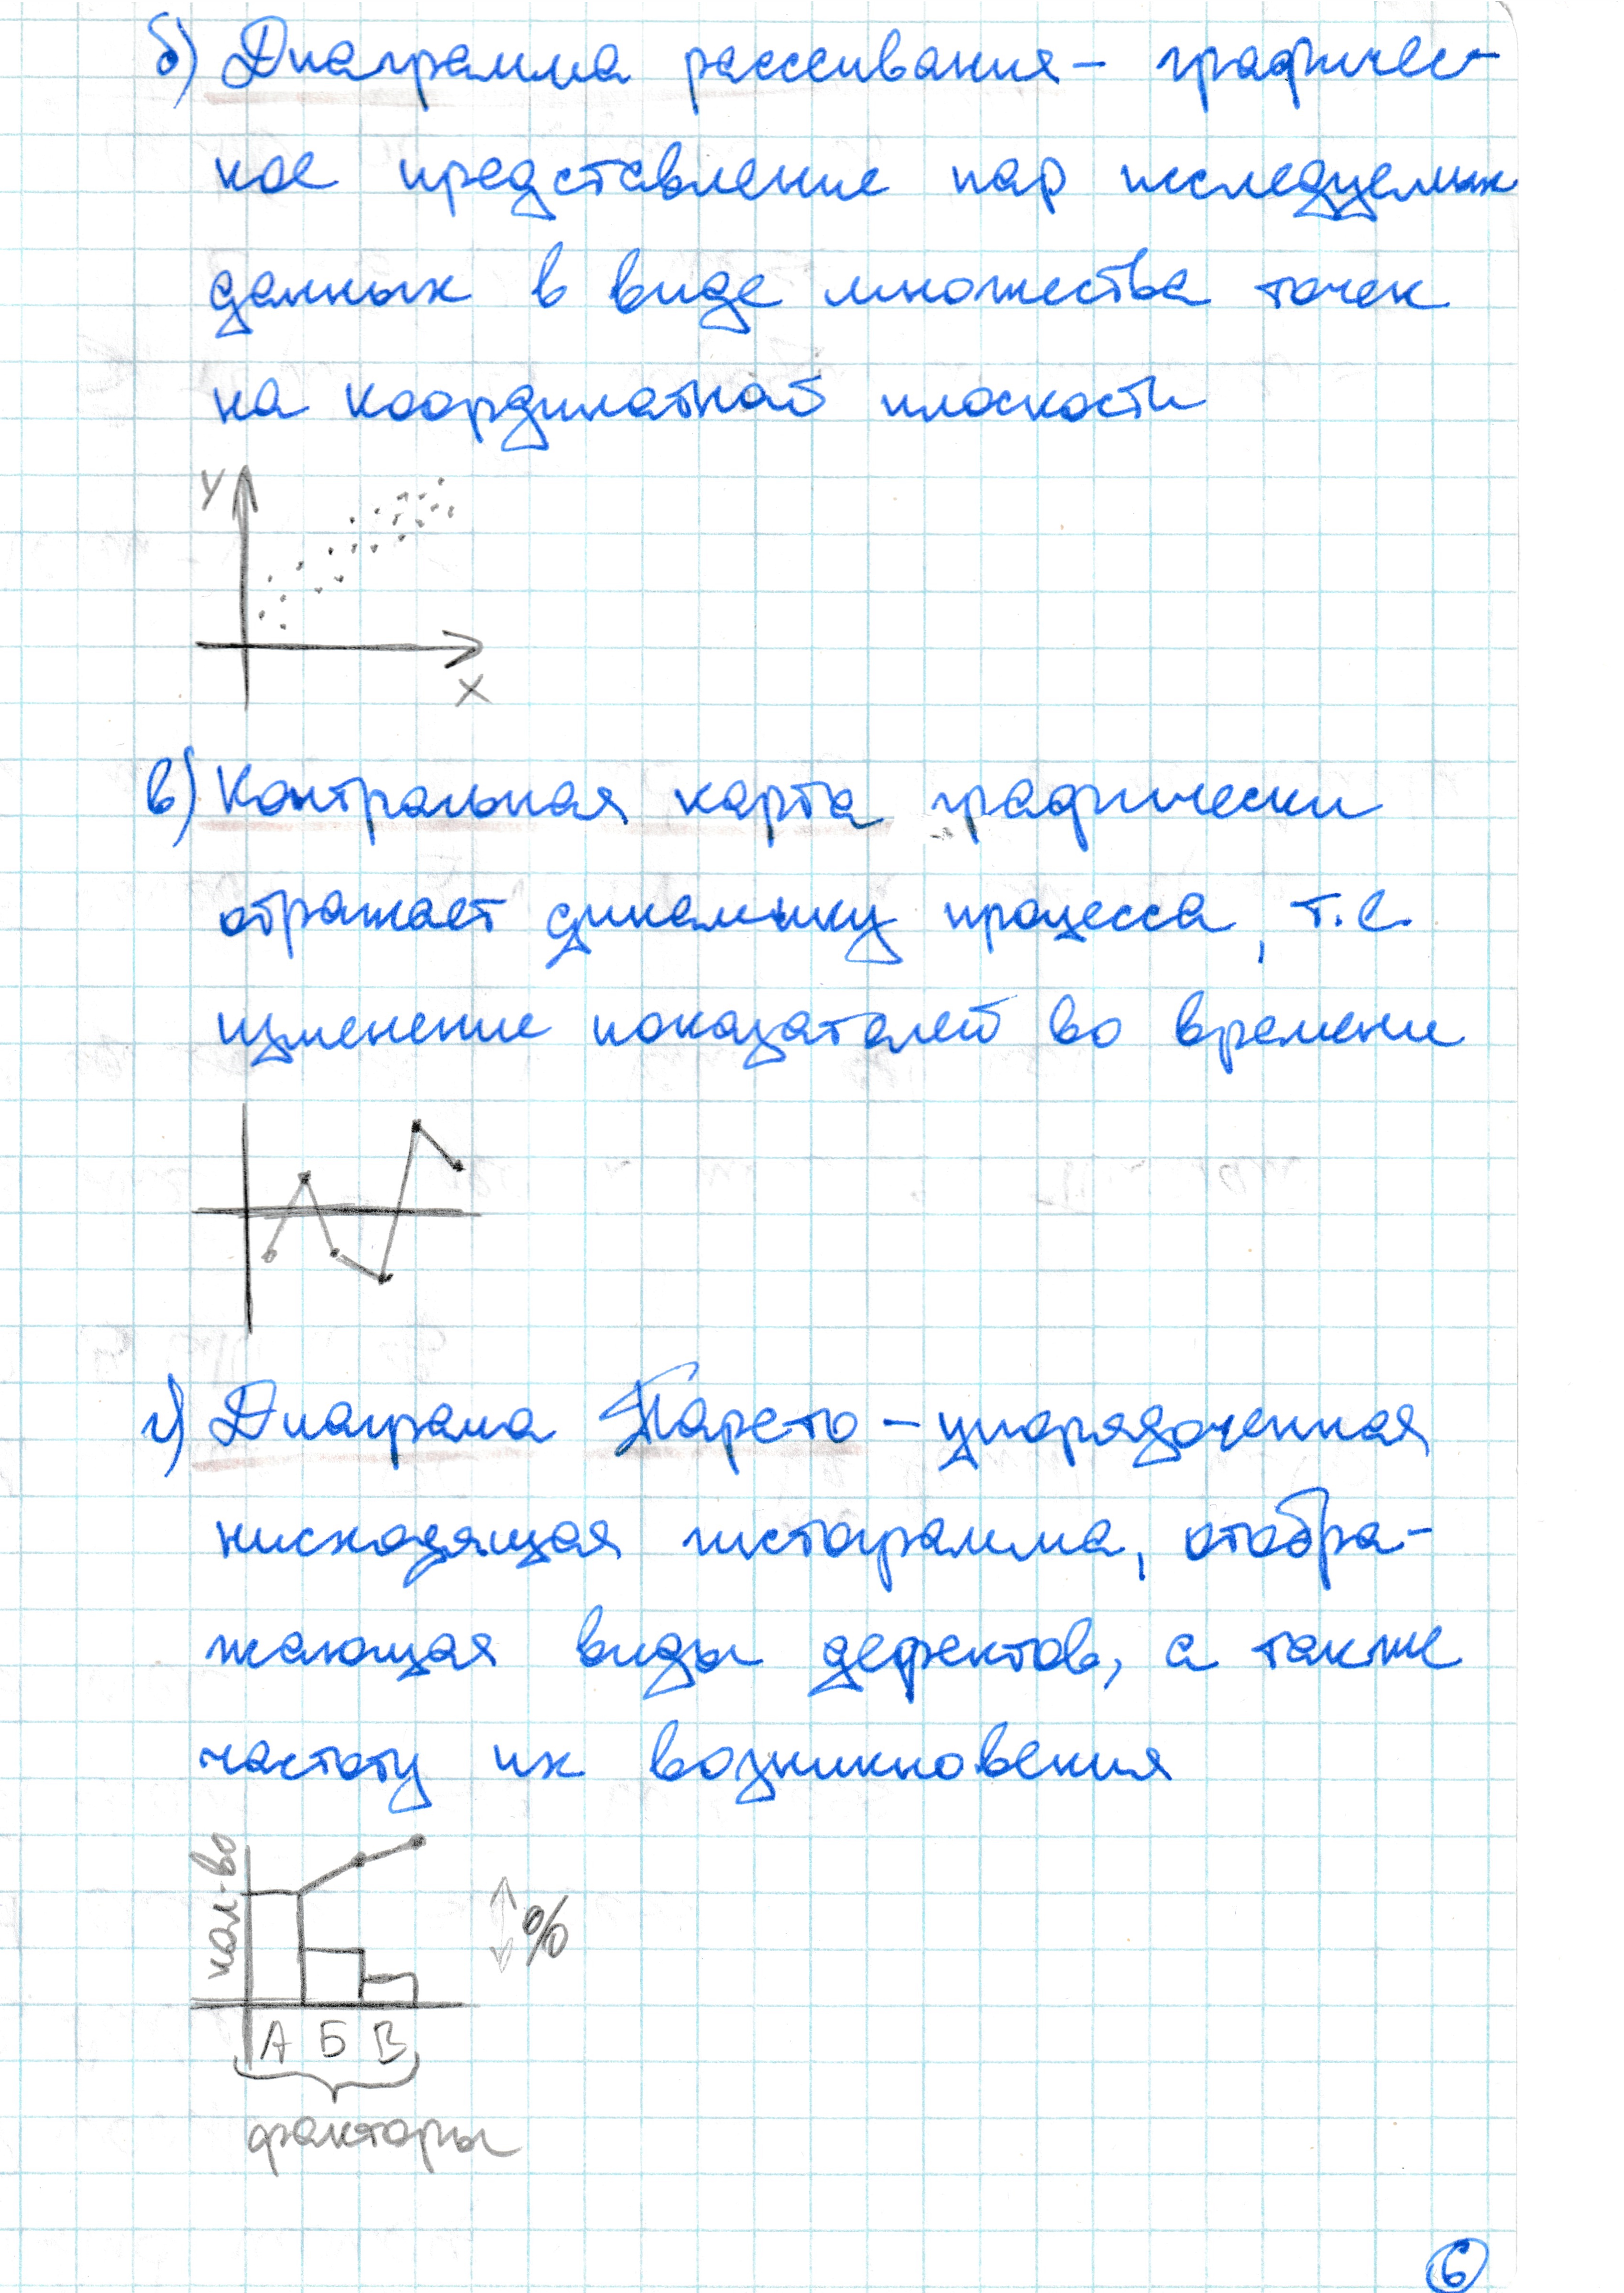 б) Диаграмма рассеивания – графичес-
кое представление пар исследуемых
данных в виде множества точек
на координатной плоскости
Y
X
в) Контрольная карта графически
отражает динамику процесса, т.е.
изменение показателей во времени
г) Диаграма Парето – упорядоченная
нисходящая гистограмма, отобра-
жающая виды дефектов, а также
частоту их возникновения
кол-во
%
А Б В
факторы
6